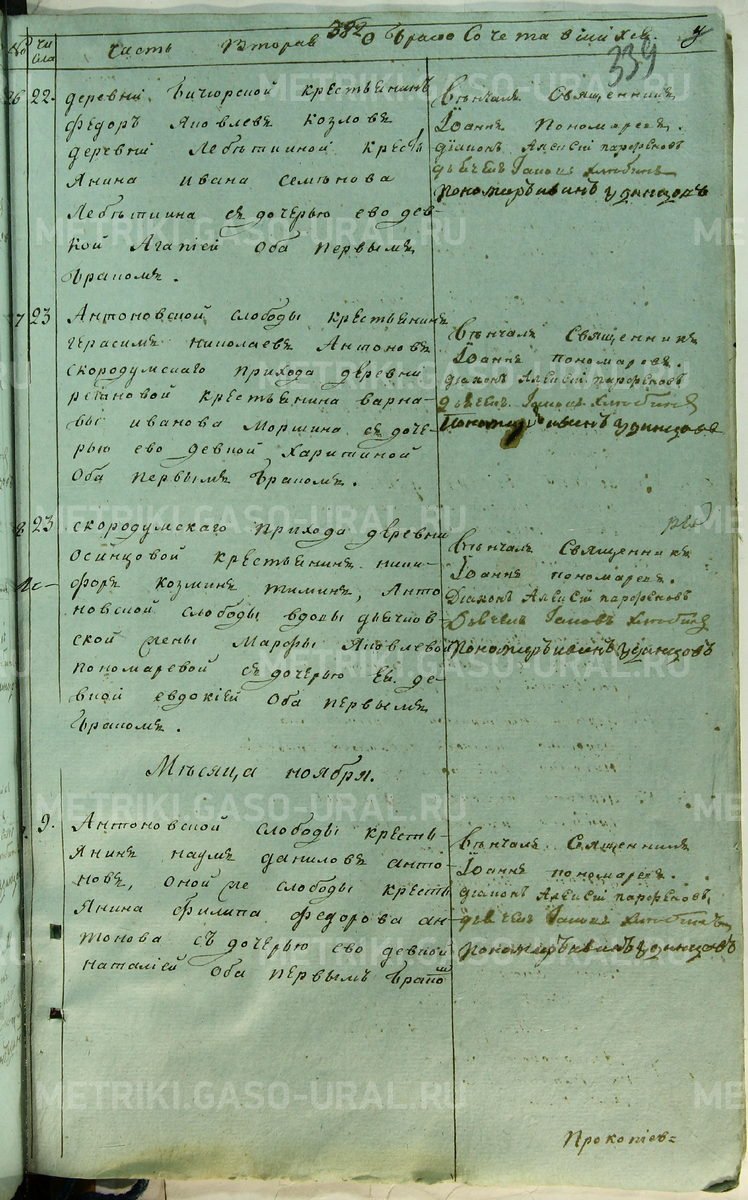 № Чи
сла
Часть Вторая
382
О бракосочетавшихся
339
26 22.
деревни Бичюрской крестьянинъ
Федоръ Яковлевъ Козловъ
деревни Лебѣткиной кресть
янина Ивана Семенова
Лебѣткина съ дочерью ево дев
кой Агапіей оба первымъ
бракомъ.
Вѣнчалъ Священникъ
Іоаннъ Пономаревъ.
діаконъ Алексій Парфеновъ
дьячекъ Іаковъ
Пономарь
7 23
Антоновской слободы крестьянинъ
Герасимъ Николаевъ Антоновъ
Скородумскаго прихода деревни
крестьянина Варна
вы Иванова Моршина съ доче
рью ево девкой Харитиной
Оба первымъ бракомъ.
Вѣнчалъ Священникъ
Іоаннъ Пономаревъ.
діаконъ Алексій Парфеновъ
дьячекъ Іаковъ
Пономарь
8 23
Скородумскаго прихода деревни
Осинцовой крестьянинъ Ники
форъ Козминъ Тиминъ, Анто
новской слободы вдовы дьячков
ской жены Марфы Яковлевой
Пономаревой съ дочерью ея де
вкой Евдокіей Оба первымъ
бракомъ.
Вѣнчалъ Священникъ
Іоаннъ Пономаревъ.
Діаконъ Алексій Парфеновъ
Дьячекъ Іаковъ
Пономарь
Мѣсяца ноября.
9.
Антоновской слободы кресть
янинъ Наумъ Даниловъ Анто
новъ, оной же слободы кресть
янина Филипа Федорова Ан
тонова съ дочерью ево девкой
Наталіей Оба первымъ браком
Вѣнчалъ Священникъ
Іоаннъ Пономаревъ.
діаконъ Алексій Парфеновъ,
дьячекъ Іаковъ
Пономарь
Прокопіев=
METRIKI.GASO-URAL.RU
METRIKI.GASO-URAL.RU
METRIKI.GASO-URAL.RU
METRIKI.GASO-URAL.RU
METRIKI.GASO-URAL.RU
METRIKI.GASO-URAL.RU
METRIKI.GASO-URAL.RU
METRIKI.GASO-URAL.RU